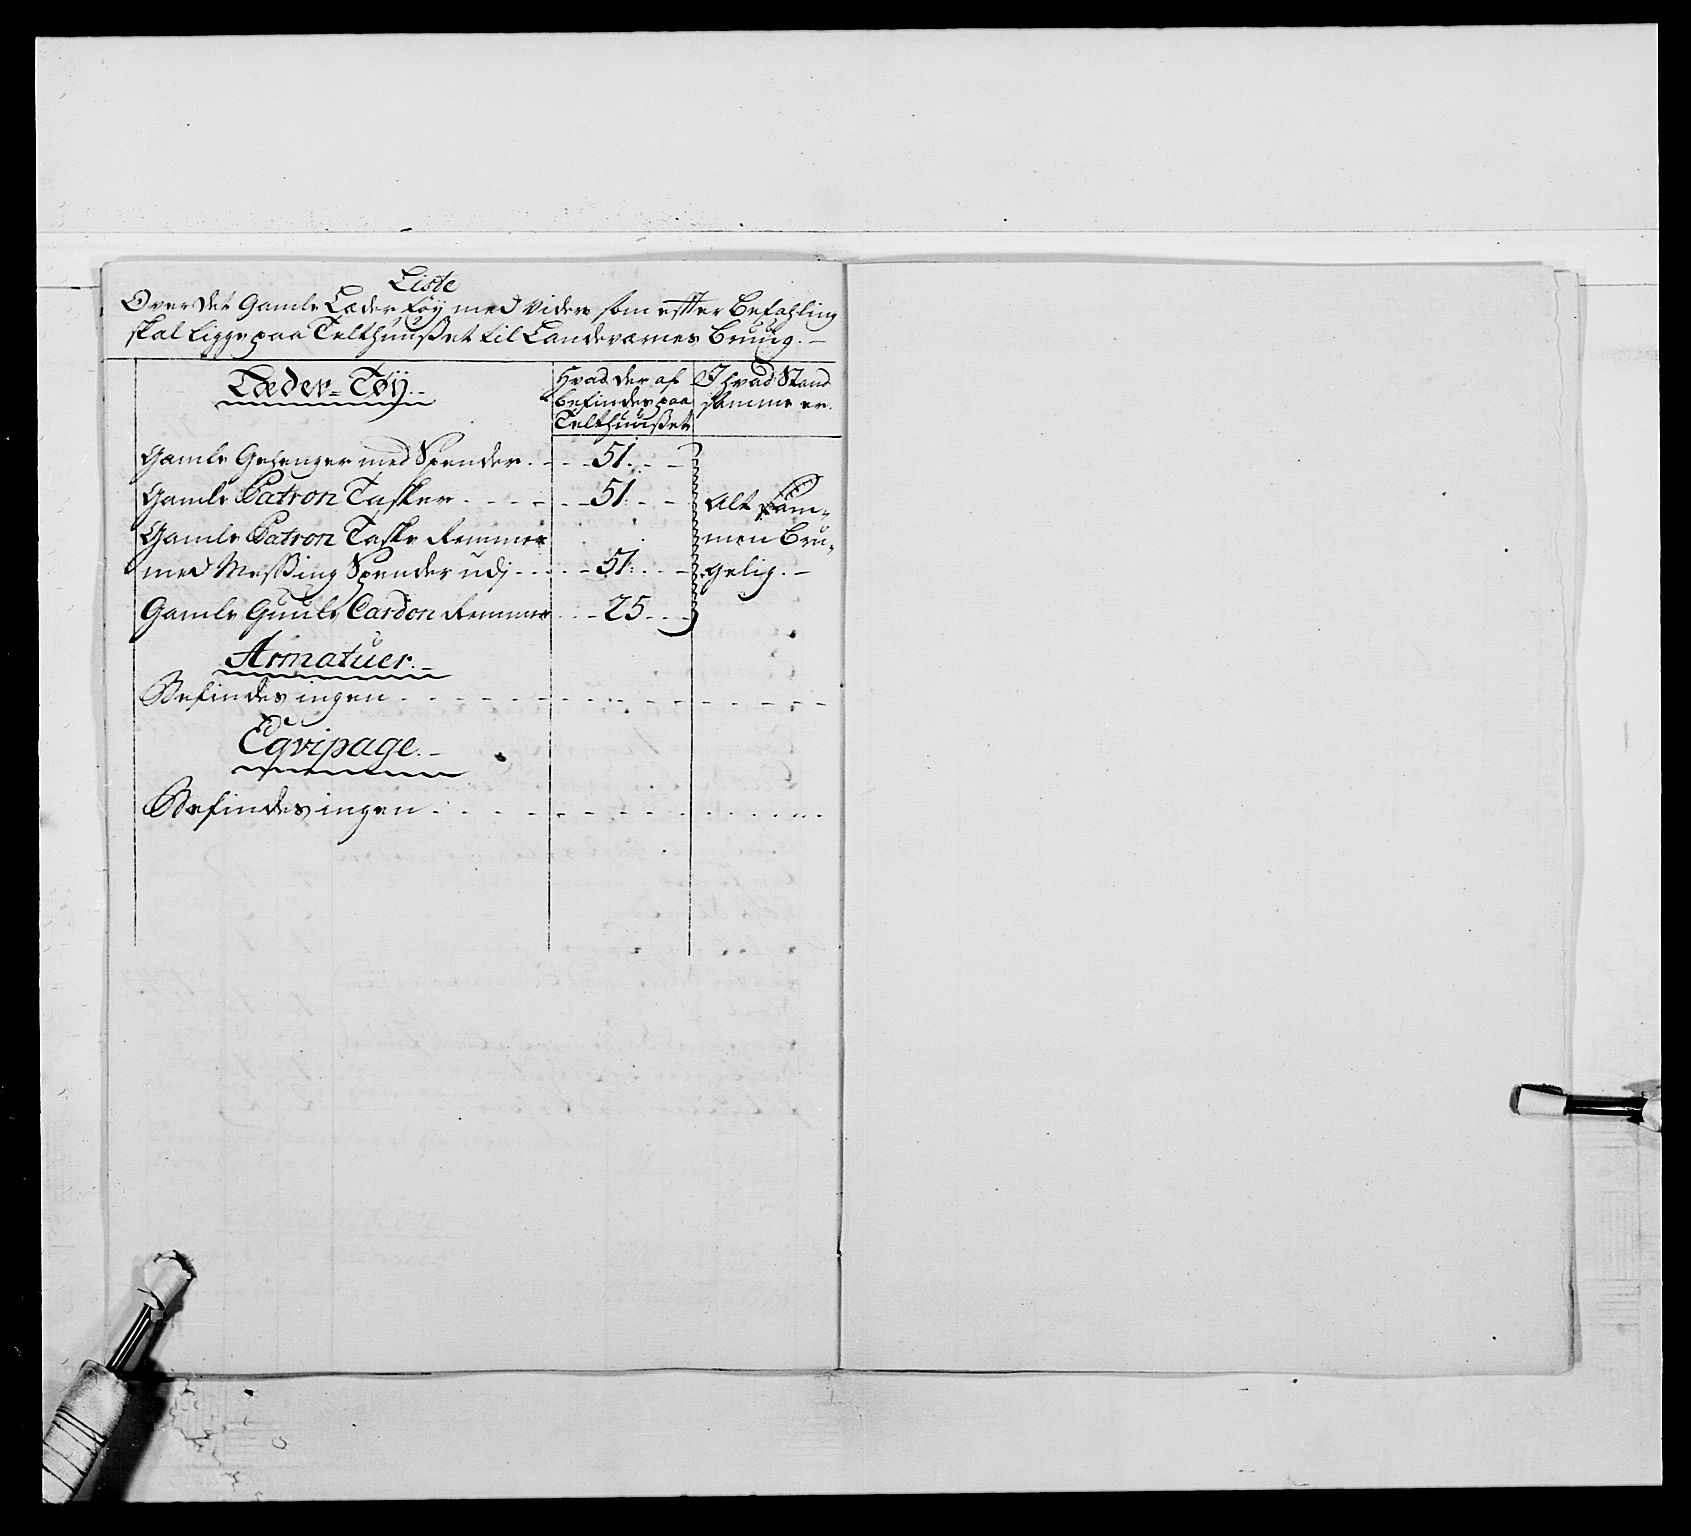 Liste
Over det Gamle Læder Tøy med Videre som efter Befahling
skal ligge paa Telthuuset til Landeværnes Bruug.
Læder-Tøÿ.
Hvad der af
befindes paa
Telthuuset
I hvad Stand
samme er.
Gamle Gehenger med Spender . 51.
Gamle Patron Tasker . 51.
Gamle Patron Taske Remmer
med Messing Spender udj . 51.
Gamle Guule Cardon Remmer . 25.
Alt sam-
men bru-
gelig.
Armatuer.
Befindes ingen
Eqvipage.
Befindes ingen